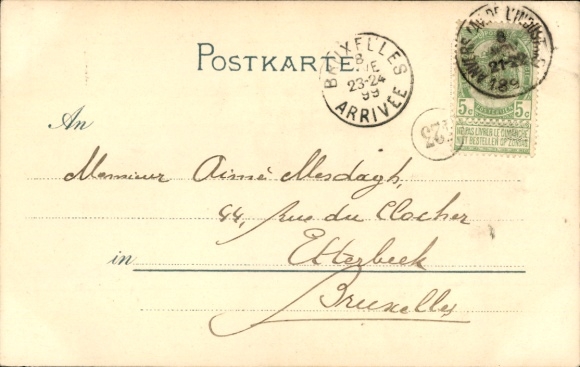 POSTKARTE
BRUXELLES
8
23-24
99
ARRIVÉE
5c 5c
NE PAS LIVRER LE DIMANCHE
NIET BESTELLEN OP ZONDAG
An
Monsieur Aimé Mesdagh,
44, Rue du Clocher
in Etterbeek
Bruxelles